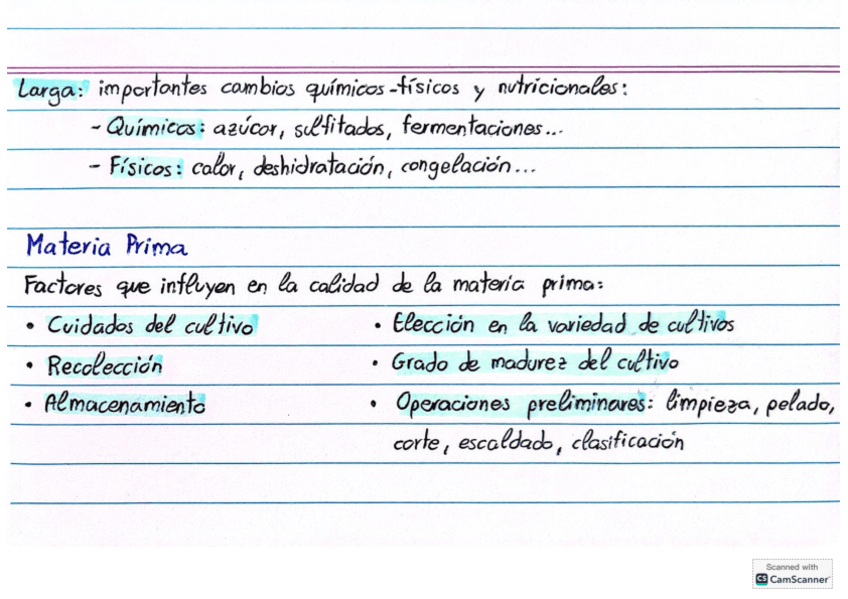 Larga: importantes cambios químicos-físicos y nutricionales:
- Químicos: azúcar, sulfitados, fermentaciones...
- Físicos: calor, deshidratación, congelación...
Materia Prima
Factores que influyen en la calidad de la materia prima:
• Cuidados del cultivo
• Elección en la variedad de cultivos
• Recolección
• Grado de madurez del cultivo
• Almacenamiento
• Operaciones preliminares: limpieza, pelado,
corte, escaldado, clasificación
Scanned with
CS CamScanner